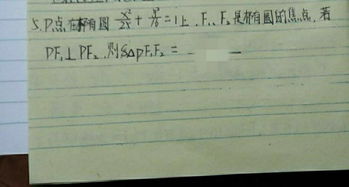 5.P点在椭圆 x²/25 + y²/16 =1上.F₁、F₂是椭圆的焦点.若
PF₁⊥PF₂,则S△PF₁F₂ =